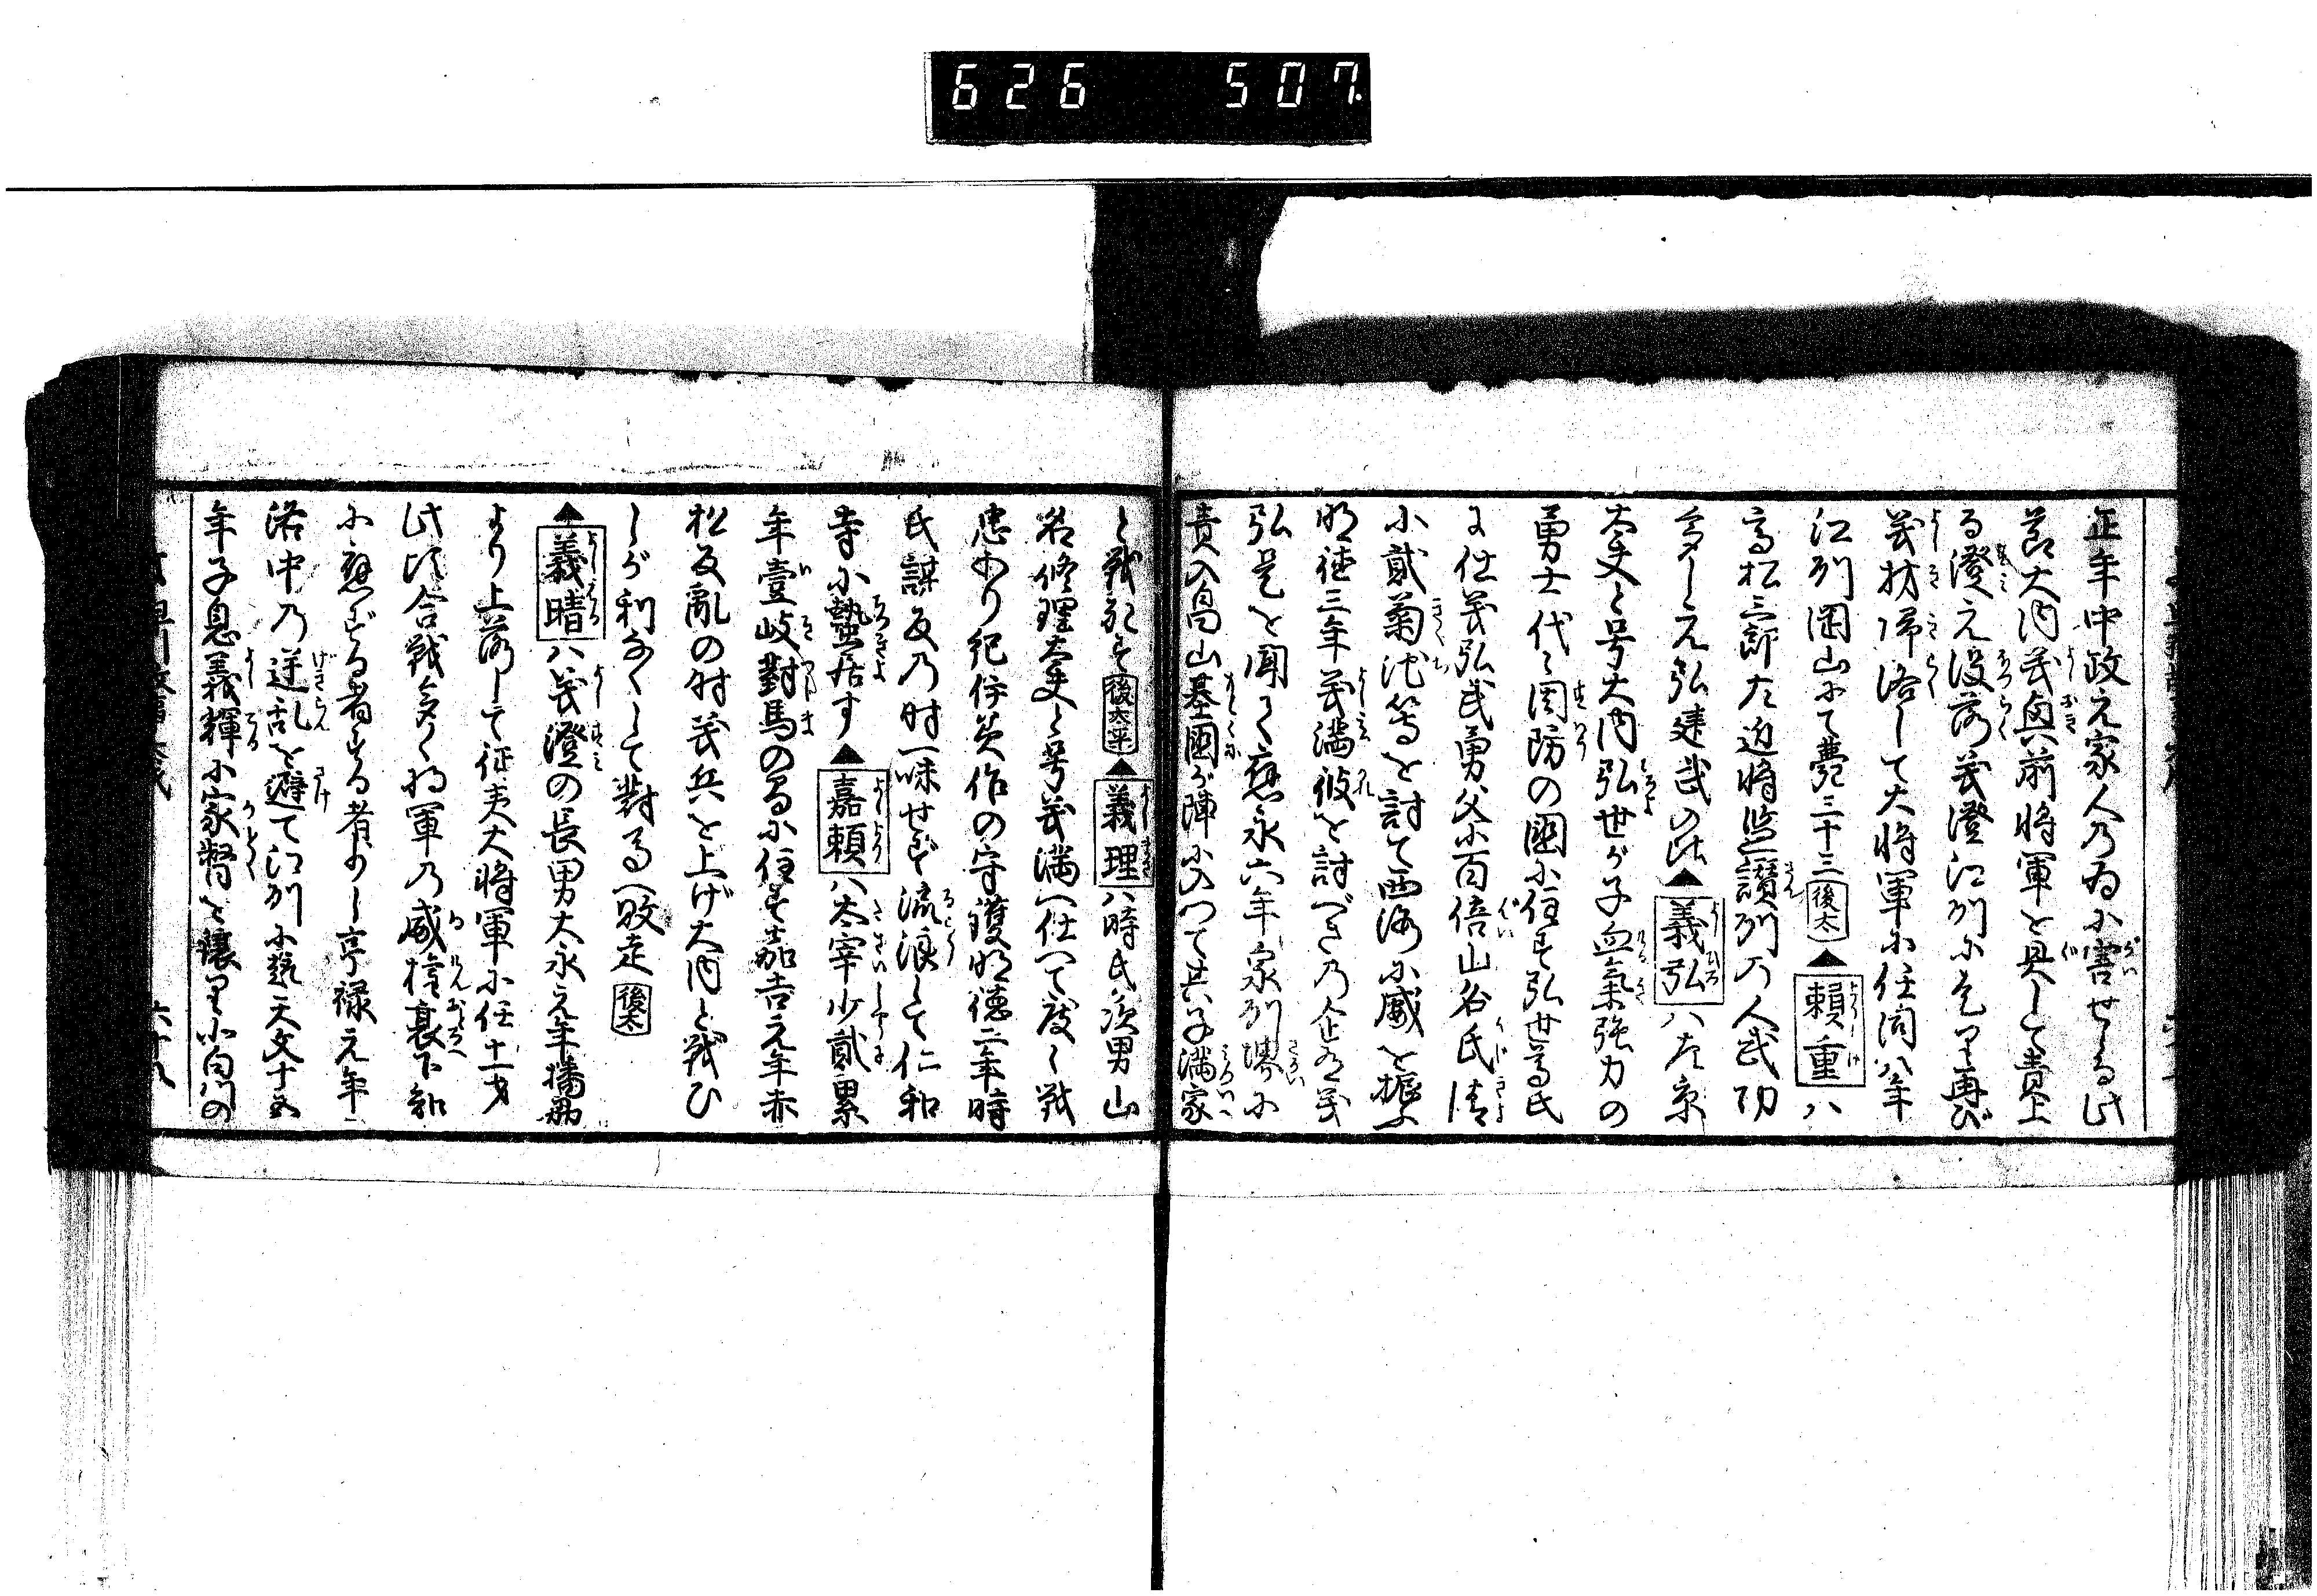 626 507
正年中政元家人乃為小害せらる此
節大内義興前将軍を具して責上
る澄元没落義澄江州小走り再び
義材帰洛して大将軍小任同八年
江州岡山にて薨三十三後太▲頼重八
高松三郎左近将監讃州乃人武功
多し元弘建武の比▲義弘八左京
大夫と号大内弘世が子血氣強力の
勇士代々周防の國小住す弘世尊氏
に仕義弘武勇父小百倍山名氏清
小貳菊池等を討て西海小威を振ふ
明徳三年義満彼を討べき乃企有義
弘是を聞て應永六年泉州堺小
責入畠山基國が陣小入つて其子満家
と戦死す後太平▲義理八時氏次男山
名修理大夫と号義満へ仕へて度々戦
忠あり紀伊美作の守護明徳二年時
氏謀反乃時一味せず流浪して仁和
寺小蟄居す▲嘉頼八太宰少貳累
年壹岐對馬の守小住す嘉吉元年赤
松反亂の時義兵を上げ大内と戦ひ
しが利なくして對馬へ敗走後太
▲義晴八義澄の長男大永元年播磨
より上落して征夷大将軍小任十一才
此比合戦多く将軍乃威権衰下知
小應ずる者する者少し享禄元年
洛中乃逆乱を避て江州小趣天文十五
年子息義輝小家督を譲り小白川の